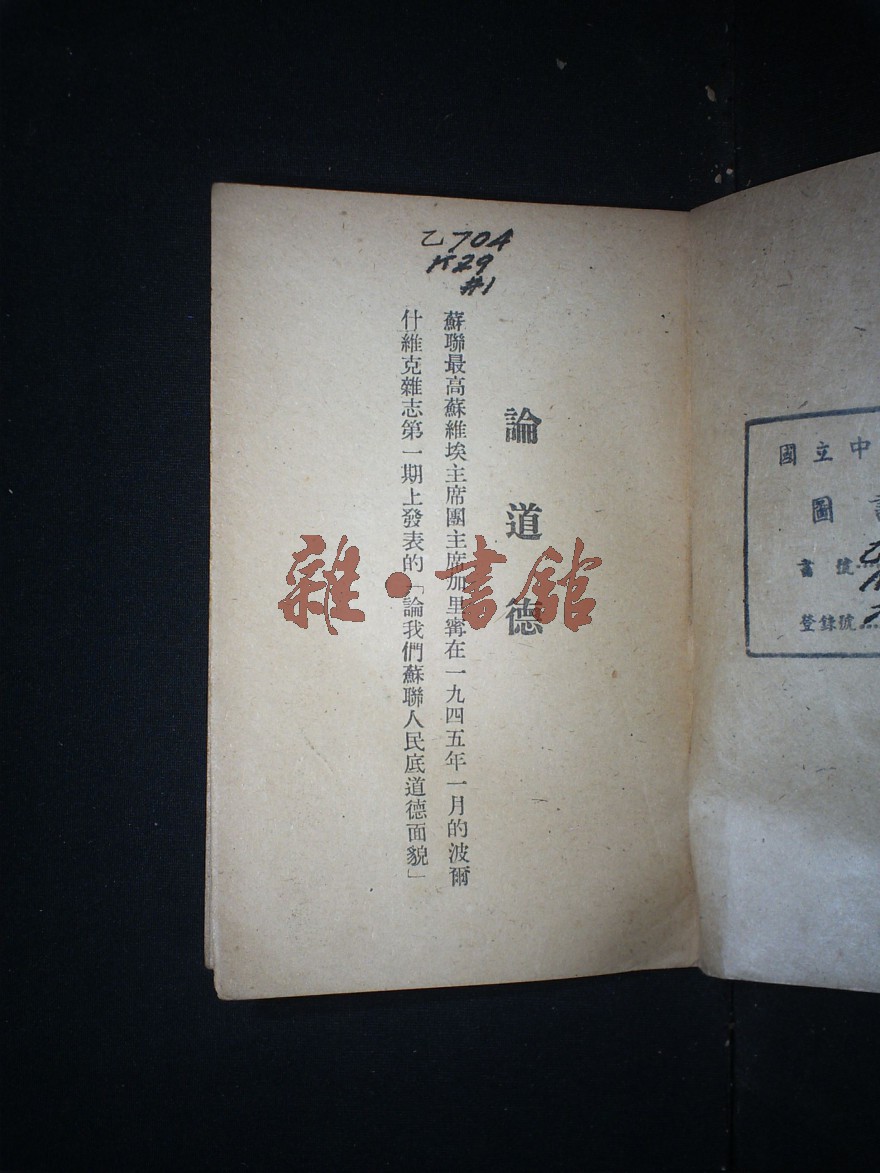 乙704
K29
#1
論道德
蘇聯最高蘇維埃主席團主席加里寗在一九四五年一月的波爾
什維克雜志第一期上發表的「論我們蘇聯人民底道德面貌」
雜·書館
國立中
圖
書號
登錄號